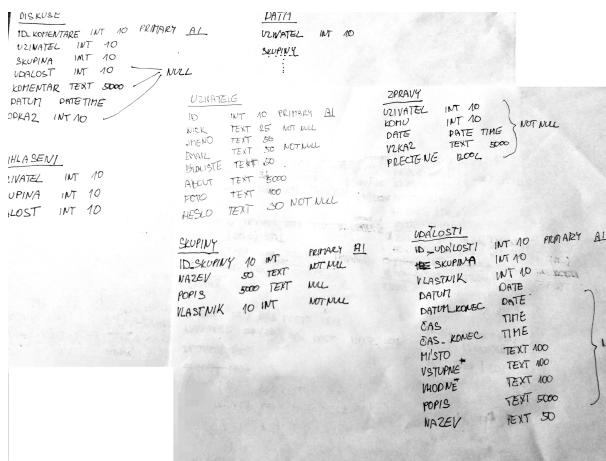 DISKUSE
ID_KOMENTARE INT 10 PRIMARY AI
UZIVATEL INT 10
SKUPINA INT 10
UDALOST INT 10
KOMENTAR TEXT 5000
DATUM DATETIME
ODKAZ INT 10
NULL
DATM
UZIVATEL INT 10
SKUPINY
HLASENI
IVATEL INT 10
UPINA INT 10
LOST INT 10
UZIVATELE
ID INT 10 PRIMARY AI
NICK TEXT 25 NOT NULL
JMENO TEXT 50
EMAIL TEXT 50 NOT NULL
BYDLISTE TEXT 50
ABOUT TEXT 5000
FOTO TEXT 100
HESLO TEXT 30 NOT NULL
ZPRAVY
UZIVATEL INT 10
KOMU INT 10
DATE DATE TIME
VZKAZ TEXT 5000
PRECTENE BOOL
NOT NULL
SKUPINY
ID_SKUPINY 10 INT PRIMARY AI
NAZEV 50 TEXT NOT NULL
POPIS 5000 TEXT NULL
VLASTNIK 10 INT NOT NULL
UDÁLOSTI
ID_UDÁLOSTI INT 10 PRIMARY AI
SKUPINA INT 10
VLASTNIK INT 10
DATUM DATE
DATUM_KONEC DATE
ČAS TIME
ČAS_KONEC TIME
MÍSTO TEXT 100
VSTUPNÉ TEXT 100
VHODNÉ TEXT 100
POPIS TEXT 5000
NAZEV TEXT 50